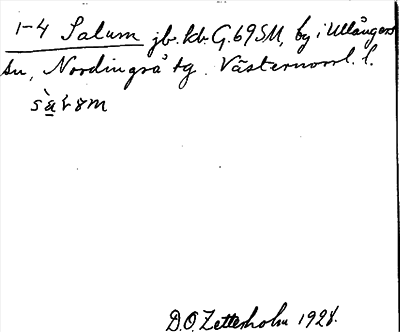 1-4 Salum jb. kb. G. 69 SM, by i Ullångers
sn, Nordingrå tg. Västernorrl. l.
D.O. Zetterholm 1928.